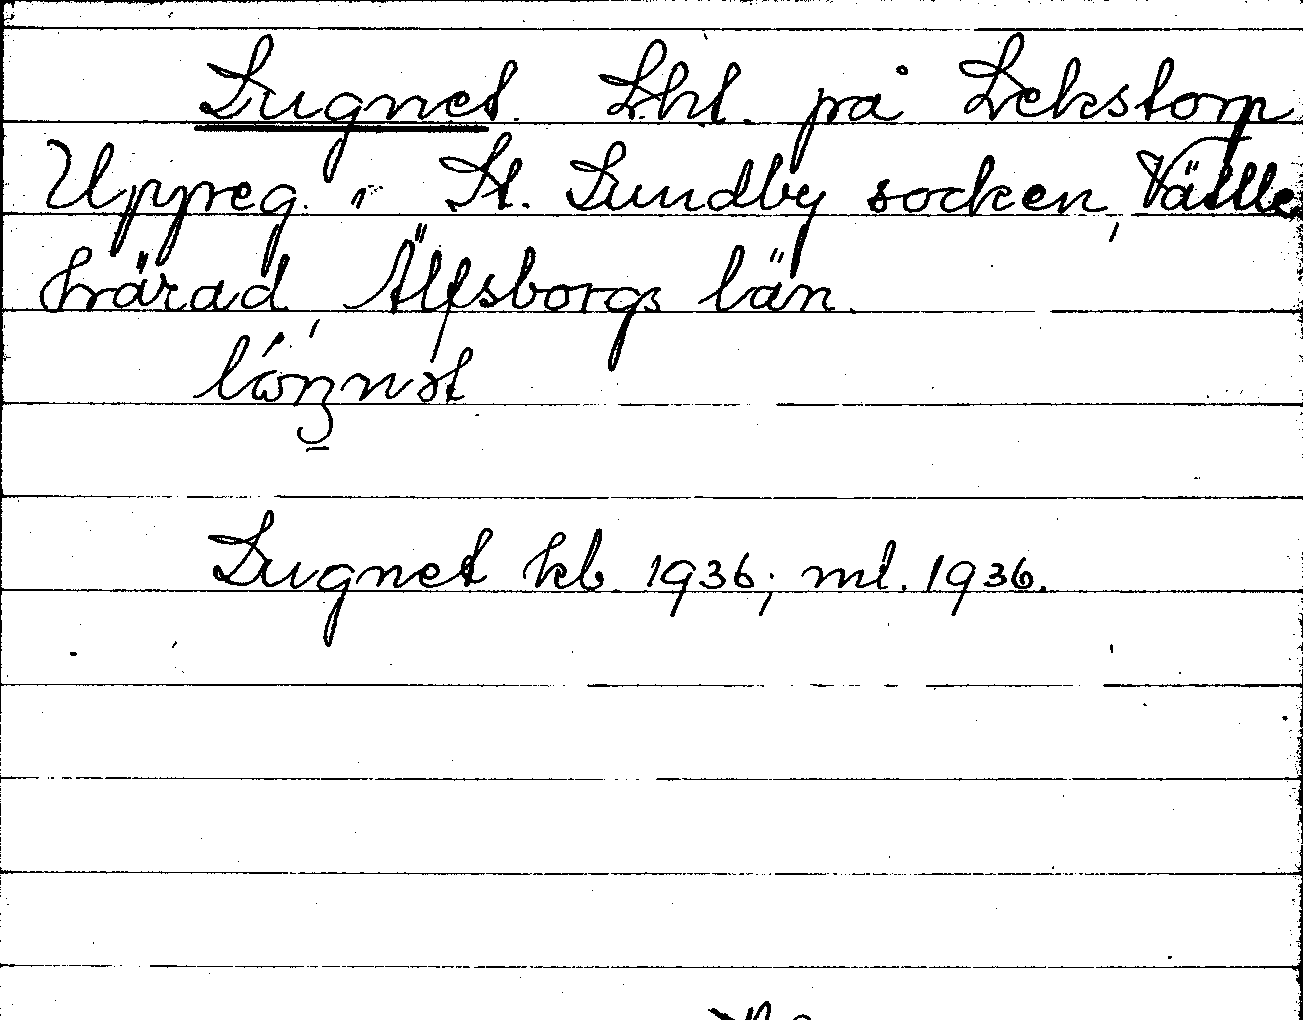 Lugnet. Lht. på Lekstorp
Uppreg. i St. Lundby socken, Vättle
härad, Älfsborgs län.
Lugnet kb. 1936; ml. 1936.